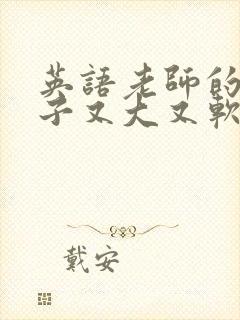 英語老師的
子又大又軟
戴安